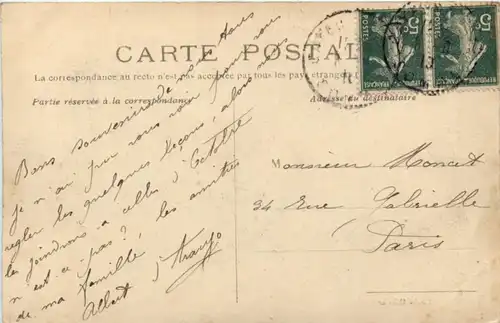 CARTE POSTALE
La correspondance au recto n'est pas acceptée par tous les pays étrangers
Partie réservée à la correspondance
Adresse du destinataire
Bons souvenirs de nous tous
je n'ai pu vous voir pour
régler les quelques leçons, alors nous
les joindrons à celles d'Octobre
n'est ce pas? les amitiés
de ma famille
Albert d'Araujo
Monsieur Moncet
34 Rue Gabrielle
Paris
POSTES
5c
REPUBLIQUE FRANÇAISE
POSTES
5c